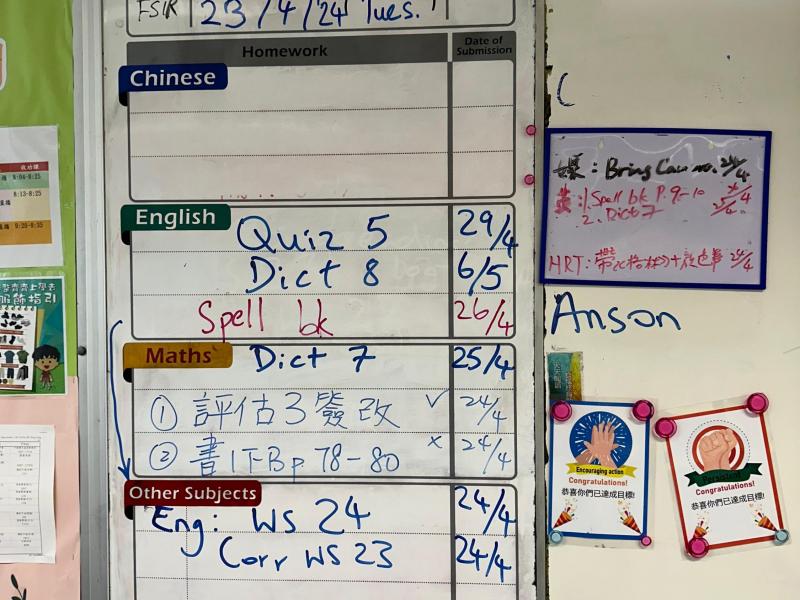 23/4/24 Tues.
Homework
Date of Submission
Chinese
English
Quiz 5 29/4
Dict 8 6/5
Spell bk 26/4
Maths
Dict 7 25/4
① 評估3發改 ✓ 24/4
② 書1下B p.78-80 × 24/4
Other Subjects
Eng: WS 24 24/4
Corr WS 23 24/4
8:13-8:25
Bring 24/4
1. Spell bk P.9-10
2. Dict 7 25/4
HRT: 24/4
Anson
Encouraging action
Congratulations!
恭喜你們已達成目標!
Congratulations!
恭喜你們已達成目標!